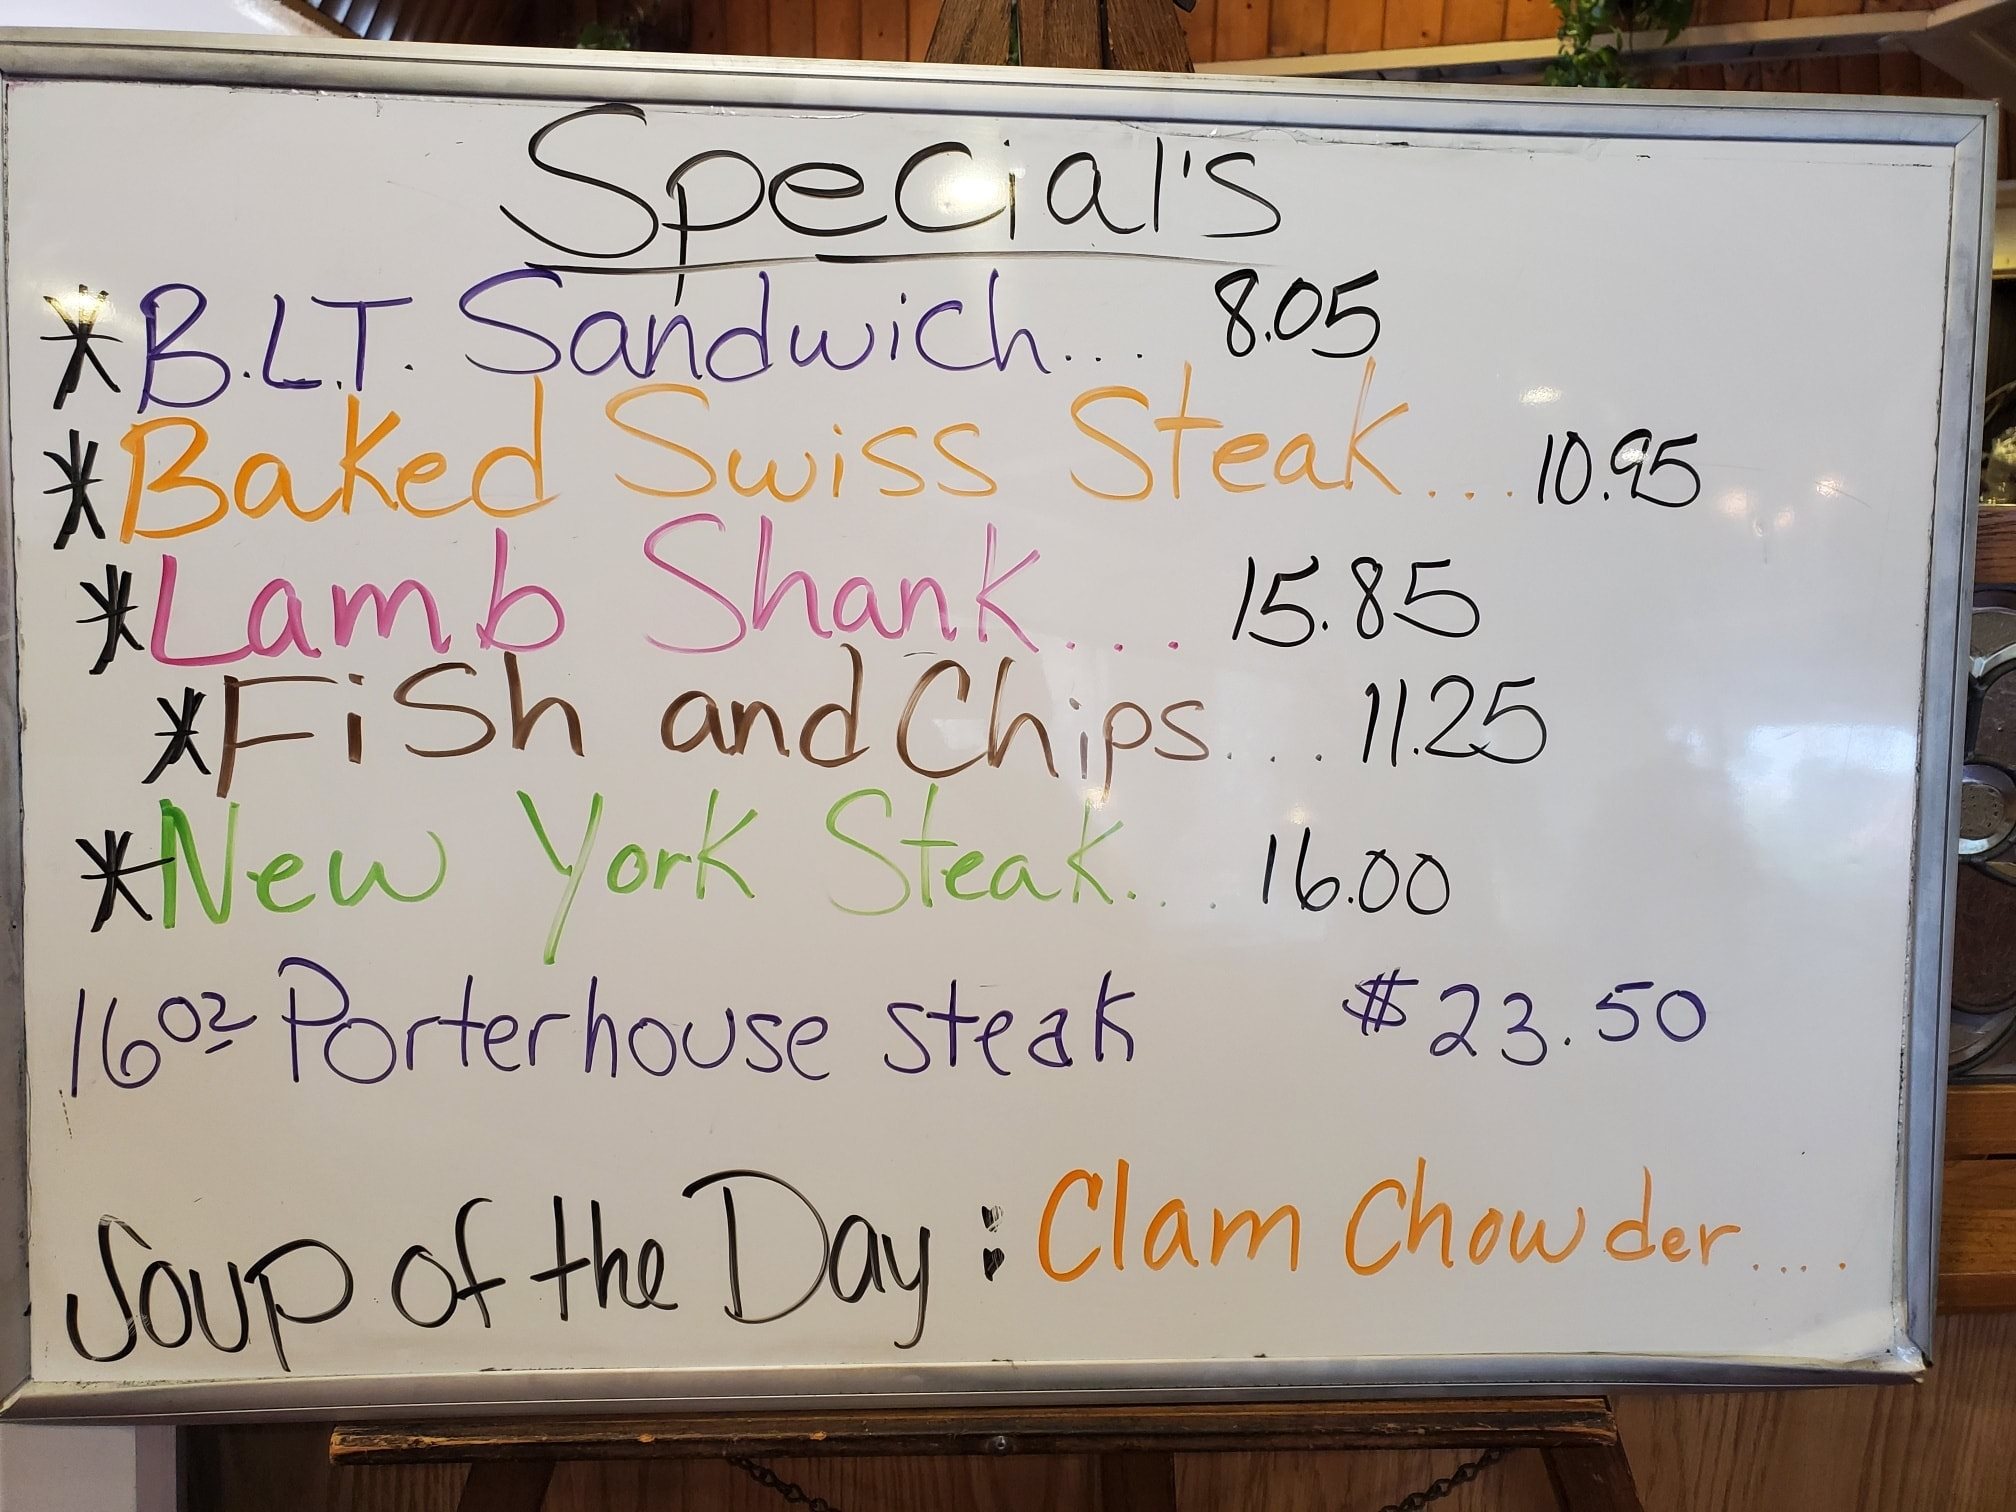 Special's
*B.L.T. Sandwich... 8.05
*Baked Swiss Steak... 10.95
*Lamb Shank.... 15.85
*Fish and Chips.... 11.25
*New York Steak... 16.00
16oz Porterhouse steak $23.50
Soup of the Day: Clam Chowder....